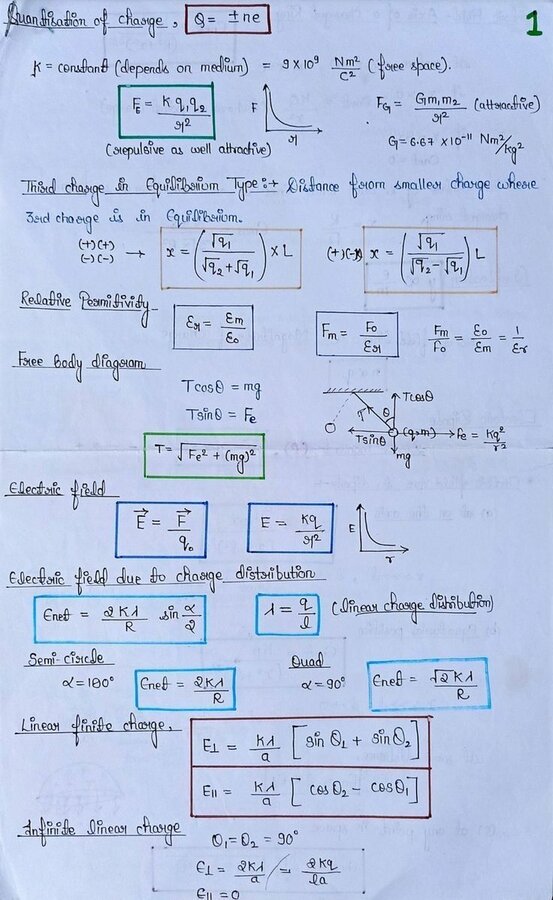 Quantisation of charge, Q = ±ne
1
K = constant (depends on medium) = 9×10⁹ Nm²/C² (free space).
F_E = K q₁q₂/r²
F
r
F_G = Gm₁m₂/r² (attractive)
(repulsive as well attractive)
G = 6.67 × 10⁻¹¹ Nm²/kg²
Third charge in Equilibrium Type:→ Distance from smaller charge where
3rd charge is in Equilibrium.
(+)(+)
(-)(-) → x = (√q₁/(√q₂+√q₁)) × L
(+)(-) x = (√q₁/(√q₂-√q₁)) L
Relative Permitivity-
εr = εm/ε₀
Fm = F₀/εr
Fm/F₀ = ε₀/εm = 1/εr
Free body diagram
Tcosθ = mg
Tsinθ = Fe
T = √(Fe² + (mg)²)
Tcosθ
T
θ
Tsinθ
(q,m)
Fe = Kq²/r²
mg
Electric field
E⃗ = F⃗/q₀
E = Kq/r²
E
r
Electric field due to charge distribution
Enet = 2Kλ/R sin α/2
λ = q/l (linear charge distribution)
Semi-circle
α=180° Enet = 2Kλ/R
Quad
α=90° Enet = √2Kλ/R
Linear finite charge,
E⊥ = Kλ/a [sinθ₁ + sinθ₂]
E|| = Kλ/a [cosθ₂ - cosθ₁]
Infinite linear charge
θ₁=θ₂ = 90°
E⊥ = 2Kλ/a = 2Kq/la
E|| = 0